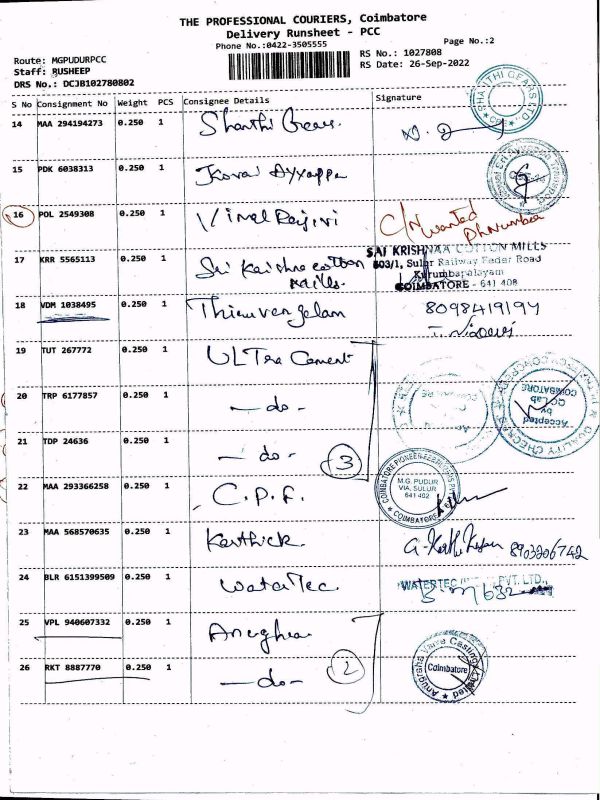 THE PROFESSIONAL COURIERS, Coimbatore
Delivery Runsheet - PCC
Phone No.:0422-3505555
Page No.:2
Route: MGPUDURPCC
Staff: RUSHEEP
DRS No.: DCJB102780802
RS No.: 1027808
RS Date: 26-Sep-2022
S No Consignment No Weight PCS Consignee Details Signature
14 MAA 294194273 0.250 1 Shanthi Gears
SHANTHI GEARS LTD.,
15 PDK 6038313 0.250 1 Kovai Ayyappa
16 POL 2549308 0.250 1 C/N wanted
Ph Number
17 KRR 5565113 0.250 1 Sri Krishna cotton
Mills.
SAI KRISHNAA COTTON MILLS
603/1, Sulur Railway Feder Road
Kurumbapalayam
COIMBATORE - 641 408
18 VDM 1038495 0.250 1 Thiruvengadam 8098419194
19 TUT 267772 0.250 1 ULTra Cement
20 TRP 6177857 0.250 1 -do-
21 TDP 24636 0.250 1 -do- 3
QUALITY CHECKED
COIMBATORE
QC Lab
by
Accepted
22 MAA 293366258 0.250 1 C.P.F.
COIMBATORE PIONEER
M.G. PUDUR
VIA, SULUR
641 402
COIMBATORE
23 MAA 568570635 0.250 1 Karthick 8903206742
24 BLR 6151399509 0.250 1 WaterTec
WATERTEC PVT. LTD.,
25 VPL 940607332 0.250 1 Anugha
26 RKT 8887770 0.250 1 -do- 2
Anugraha Valve Casting
Coimbatore